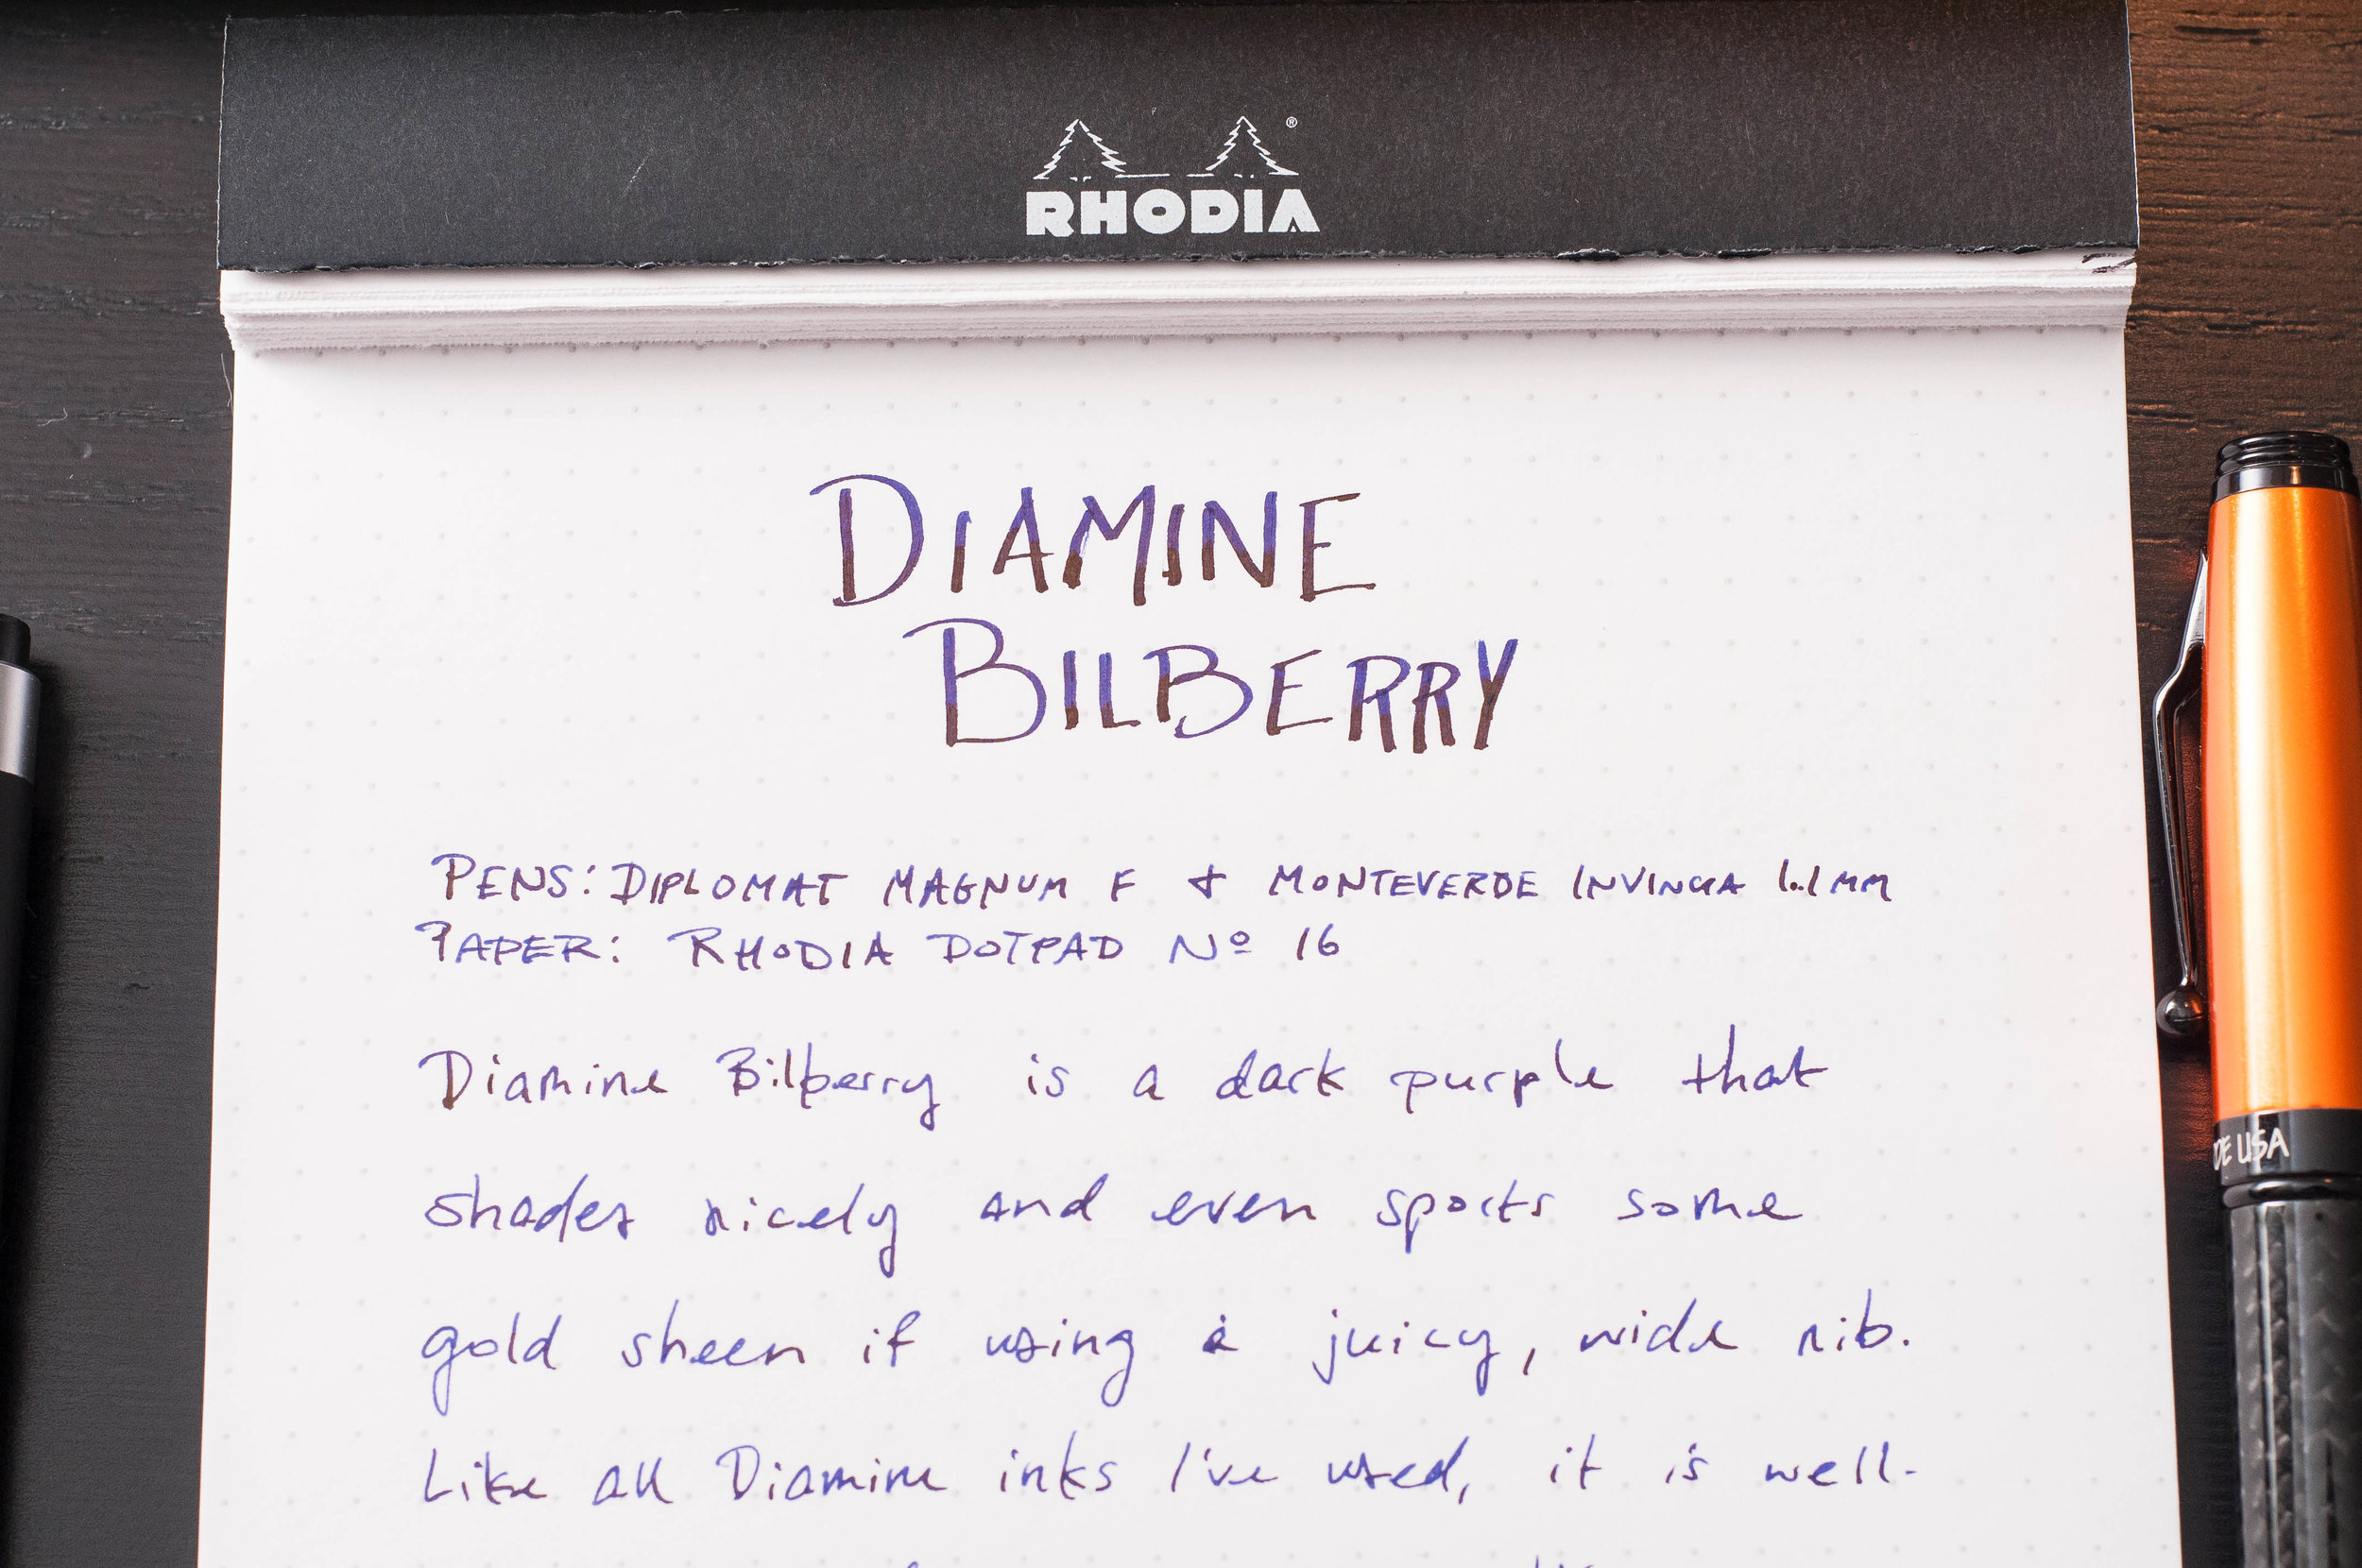 RHODIA®
DIAMINE
BILBERRY
PENS: DIPLOMAT MAGNUM F & MONTEVERDE INVINCIA 1.1MM
PAPER: RHODIA DOTPAD Nº 16
Diamine Bilberry is a dark purple that
shades nicely and even sports some
gold sheen if using a juicy, wide nib.
Like all Diamine inks I've used, it is well-
USA